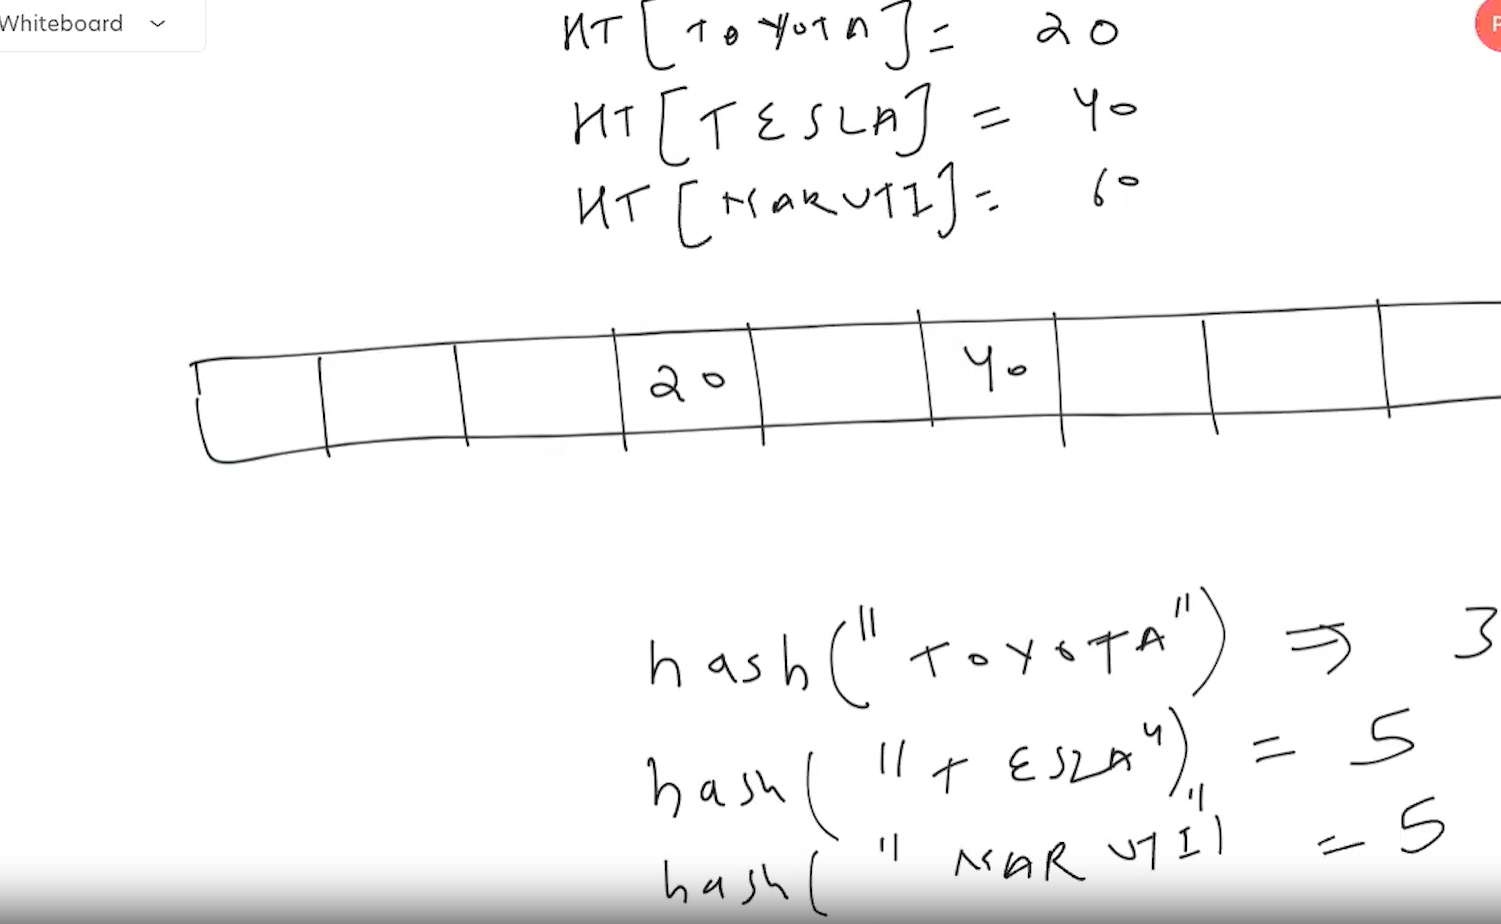 Whiteboard
P
HT[TOYOTA] = 20
HT[TESLA] = 40
HT[MARUTI] = 60
20 40
hash("TOYOTA") ⇒ 3
hash("TESLA") = 5
hash("MARUTI") = 5